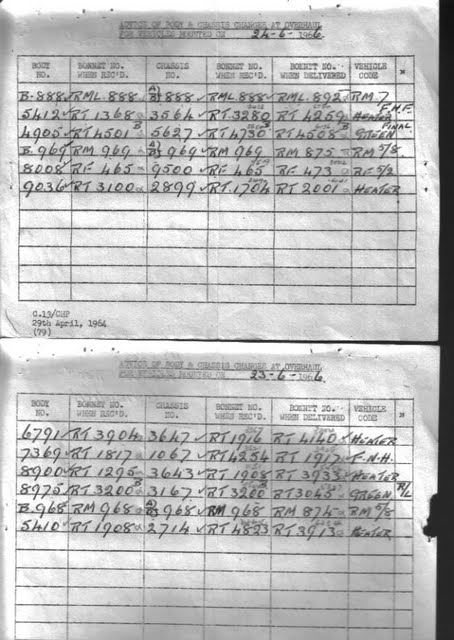 ADVICE OF BODY & CHASSIS CHANGES AT OVERHAUL
FOR VEHICLES MOUNTED ON 24-6-1966.
BODY NO. BONNET NO. WHEN REC'D. CHASSIS NO. BONNET NO. WHEN REC'D. BONNET NO. WHEN DELIVERED VEHICLE CODE
B.888 RML.888 A) B) 888 RML 888 RML.892 RM 7
F.H.F.
5412 RT 1368 3564 RT.3280 RT 4259 HEATER
FINAL
4905 RT4501 B 5627 RT 4730 B RT4508 B GREEN
B.969 RM 969 A) B) 969 RM 969 RM 875 RM 5/8.
8008 RF 465 9500 RF 465 RF 473 RF 5/2
9036 RT 3100 2899 RT.1704 RT 2001 HEATER
C.13/CHP
29th April, 1964
(79)
ADVICE OF BODY & CHASSIS CHANGES AT OVERHAUL
FOR VEHICLES MOUNTED ON 23-6-1966.
BODY NO. BONNET NO. WHEN REC'D. CHASSIS NO. BONNET NO. WHEN REC'D. BONNET NO. WHEN DELIVERED VEHICLE CODE
6791 RT 3904 3647 RT1916 RT 4140 HEATER
7369 RT 1817 1067 RT4254 RT 1917 F.N.H.
8900 RT 1295 3643 RT 1908 RT 3933 HEATER
8975 RT3200 B 3167 RT 3200 B RT3045 GREEN R/L
B.968 RM 968 A) B) 968 RM 968 RM 874 RM 5/8
5410 RT 1908 2714 RT 4823 RT3913 HEATER